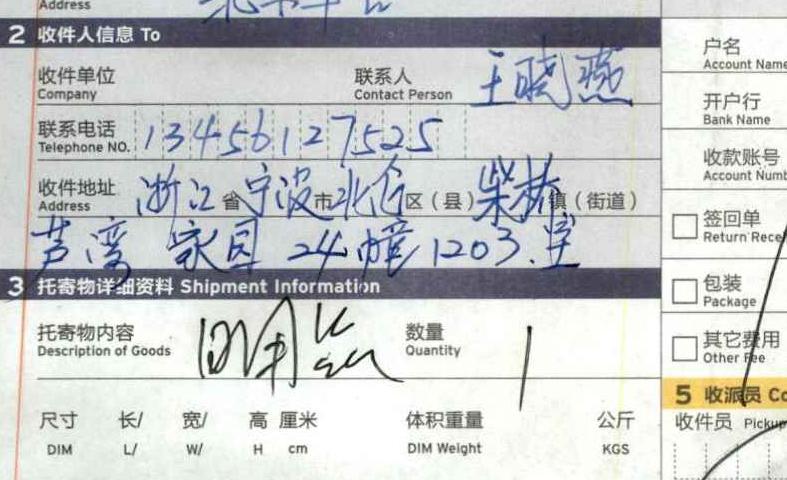 Address
2 收件人信息 To
收件单位 Company 联系人 Contact Person 王晓燕
联系电话 Telephone NO. 13456127525
收件地址 Address 浙江省宁波市北仑区（县）柴桥镇（街道）
芦湾家园24幢1203室
3 托寄物详细资料 Shipment Information
托寄物内容 Description of Goods 数量 Quantity 1
尺寸 长/ 宽/ 高 厘米 体积重量 公斤
DIM L/ W/ H cm DIM Weight KGS
户名
Account Name
开户行
Bank Name
收款账号
Account Numb
签回单
Return Rece
包装
Package
其它费用
Other Fee
5 收派员 Co
收件员 Pickup